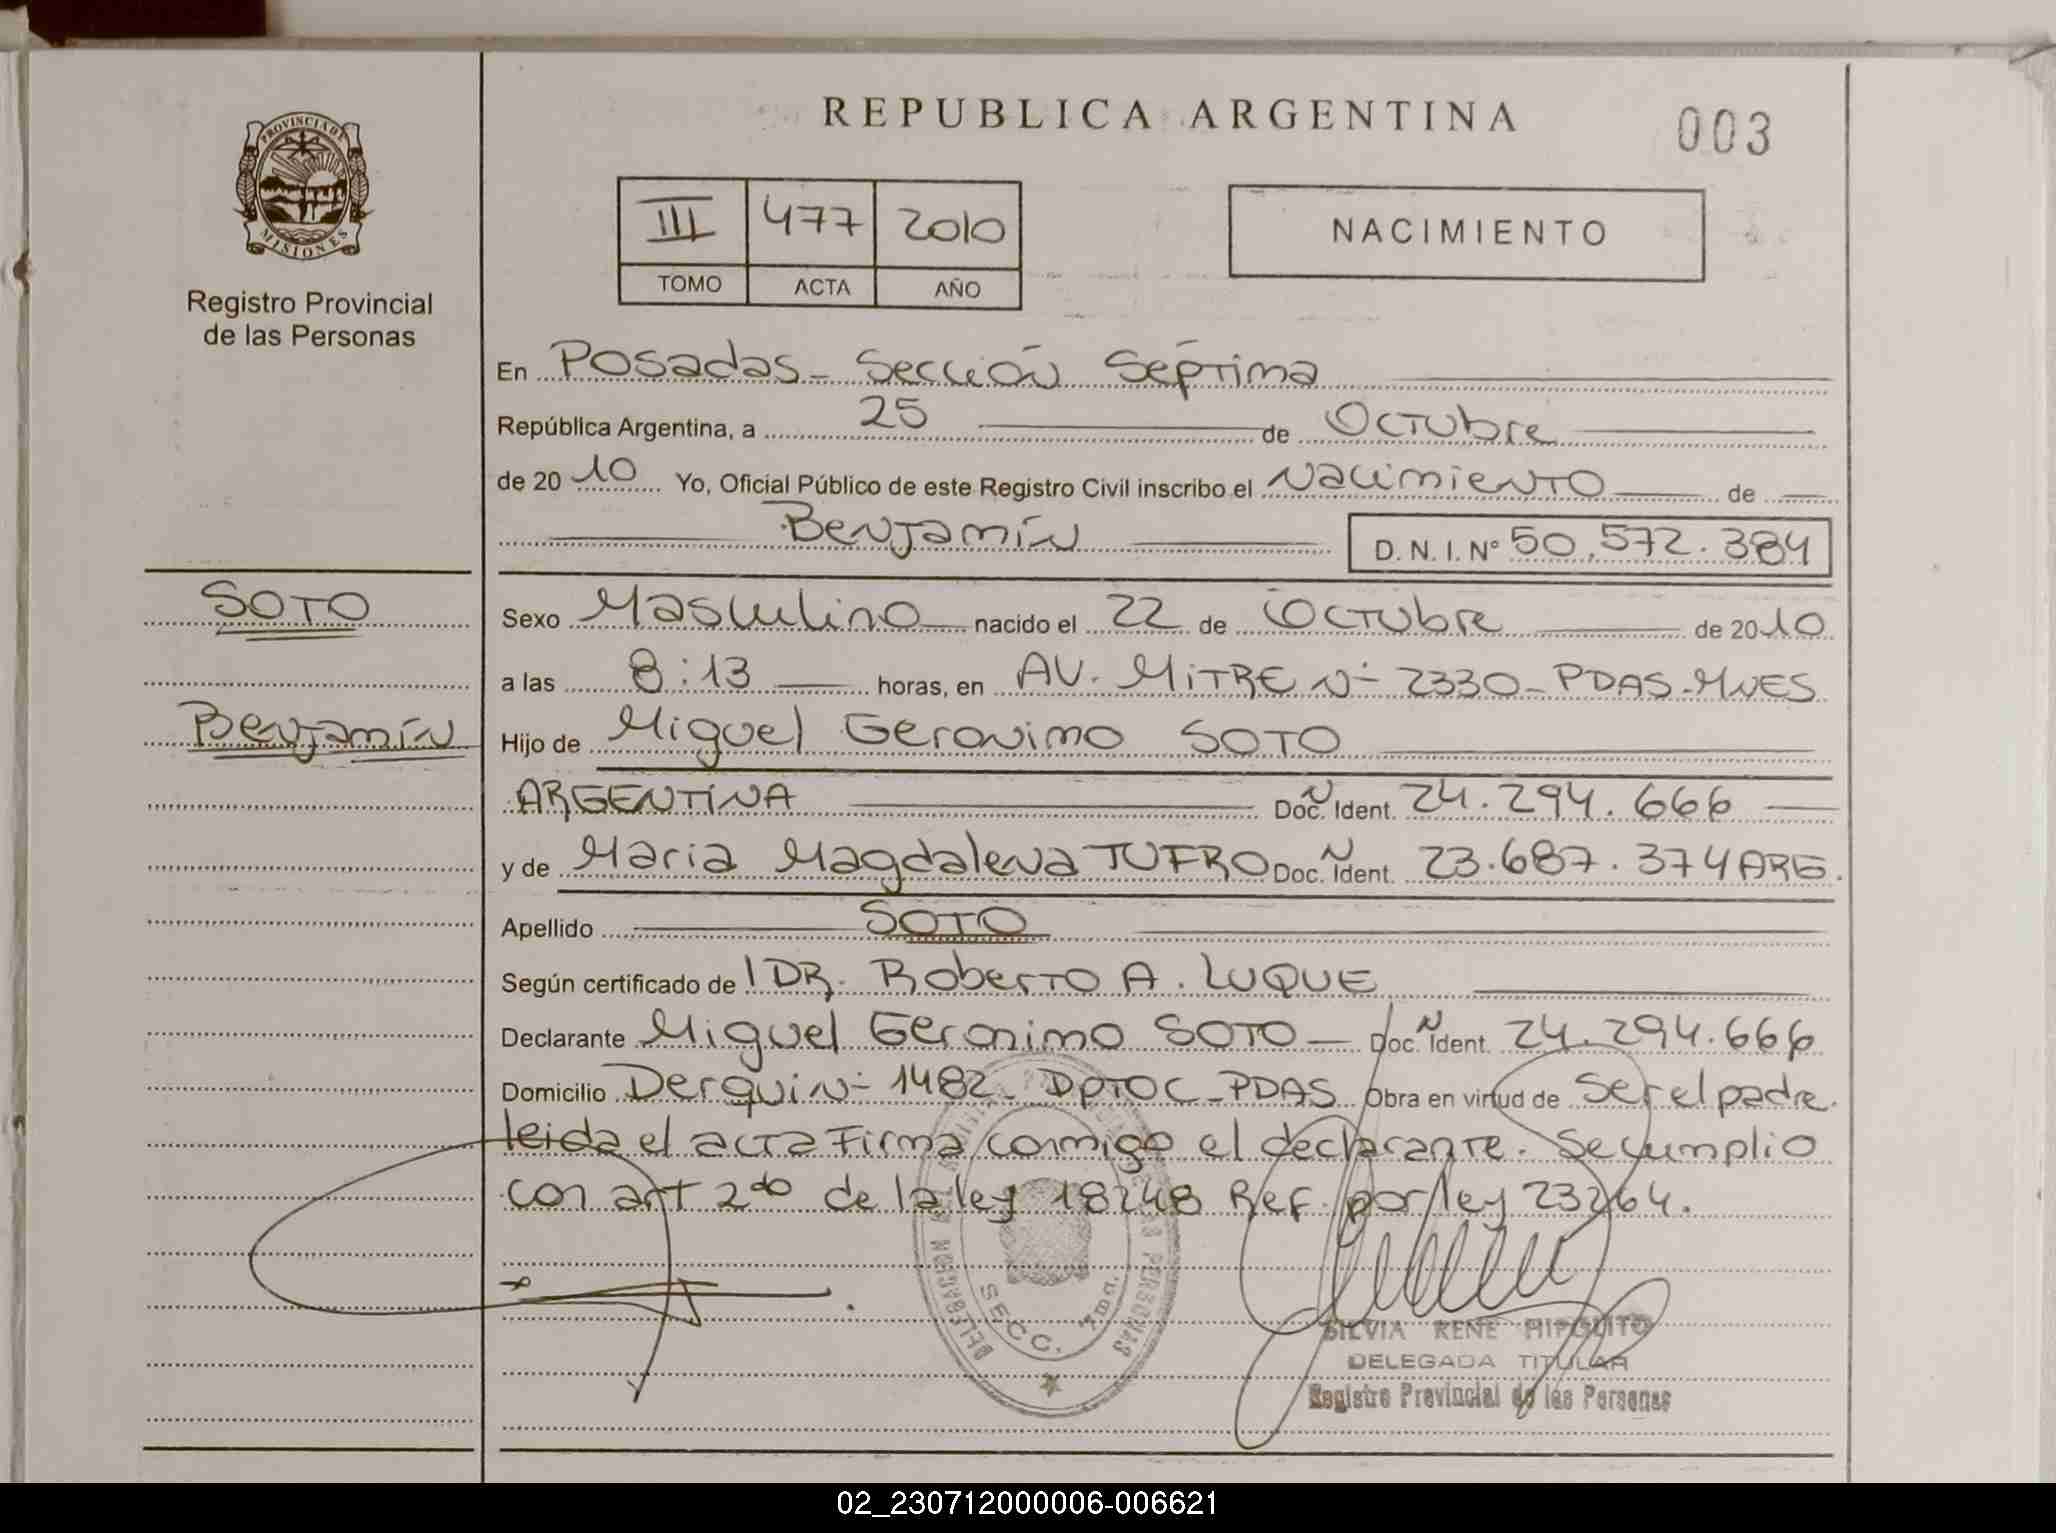 REPUBLICA ARGENTINA
003
PROVINCIA DE
MISIONES
Registro Provincial
de las Personas
III 477 2010
TOMO ACTA AÑO
NACIMIENTO
En Posadas - Sección Séptima
República Argentina, a 25 de Octubre
de 20 10 Yo, Oficial Público de este Registro Civil inscribo el Nacimiento de
Benjamín D. N. I. Nº 50.572.384
SOTO
Benjamín
Sexo Masculino nacido el 22 de Octubre de 2010
a las 8:13 horas, en AV. MITRE Nº 2330 - PDAS - MNES
Hijo de Miguel Geronimo SOTO
ARGENTINA Doc. N Ident. 24.294.666
y de Maria Magdalena TUFRO Doc. N Ident. 23.687.374 ARG.
Apellido SOTO
Según certificado de DR. Roberto A. LUQUE
Declarante Miguel Geronimo SOTO - Doc. N Ident. 24.294.666
Domicilio Derqui Nº 1482 - DPTO C - PDAS Obra en virtud de ser el padre.
leida el acta Firma conmigo el declarante. Se cumplio
con art 2do de la ley 18248 Ref. por ley 23264.
SECC. 7ma.
SILVIA RENE HIPOLITO
DELEGADA TITULAR
Registro Provincial de las Personas
02_230712000006-006621